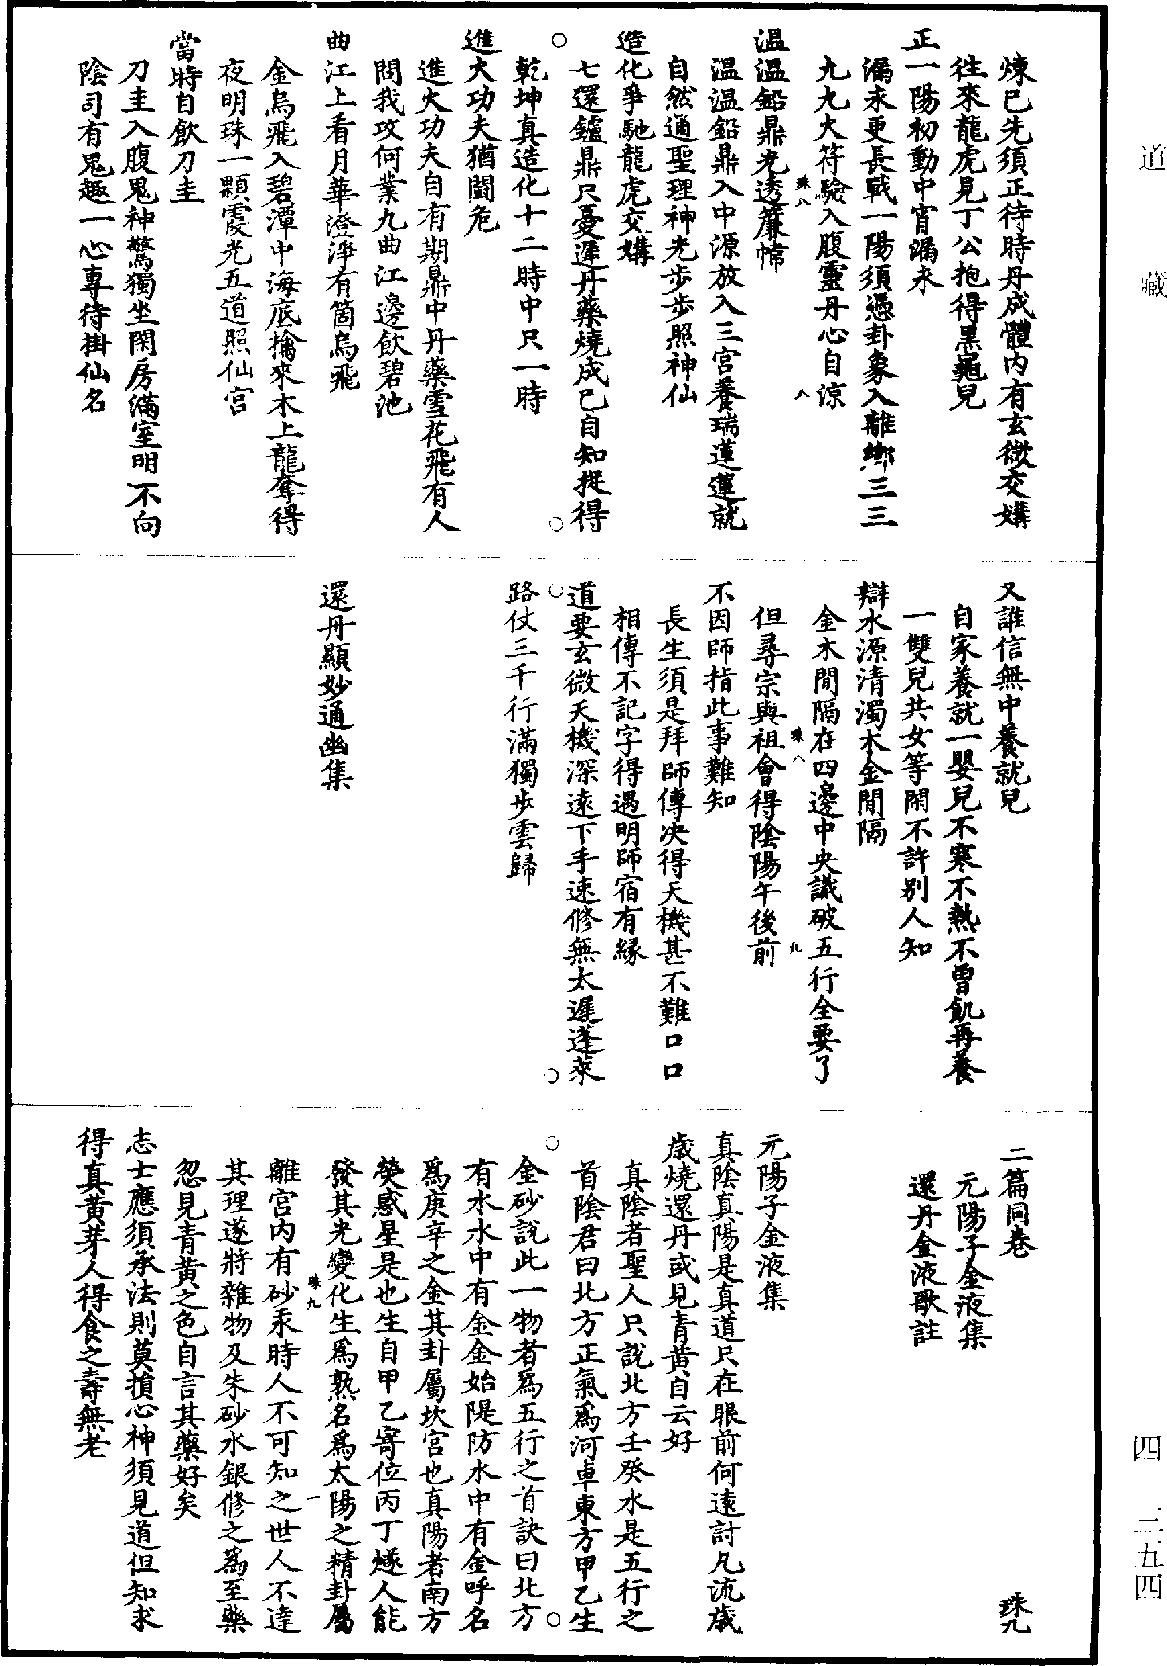 道藏
煉已先須正待時丹成體內有玄微交媾
往來龍虎見丁公抱得黑龜兒
正一陽初動中宵漏永
漏永更長戰一陽須憑卦象入離鄉三三
九九大符驗入腹靈丹心自涼
珠八
八
溫溫鉛鼎光透簾幃
溫溫鉛鼎入中源放入三宮養瑞蓮蓮就
自然通聖理神光步步照神仙
造化爭馳龍虎交媾
七還鑪鼎只憂遲丹藥燒成已自知捉得
乾坤真造化十二時中只一時
進火功夫猶鬪危
進火功夫自有期鼎中丹藥雪花飛有人
問我攻何業九曲江邊飲碧池
曲江上看月華澄淨有箇烏飛
金烏飛入碧潭中海底擒來木上龍奪得
夜明珠一顆霞光五道照仙宮
當時自飲刀圭
刀圭入腹鬼神驚獨坐閑房滿室明不向
陰司有鬼趣一心專待掛仙名
又誰信無中養就兒
自家養就一嬰兒不寒不熱不曾飢再養
一雙兒共女等閑不許別人知
辯水源清濁木金間隔
金木間隔在四邊中央識破五行全要了
珠八
九
但尋宗與祖會得陰陽午後前
不因師指此事難知
長生須是拜師傳決得天機甚不難口口
相傳不記字得遇明師宿有緣
道要玄微天機深遠下手速修無太遲蓬萊
路仗三千行滿獨步雲歸
還丹顯妙通幽集
二篇同卷
珠九
元陽子金液集
還丹金液歌註
元陽子金液集
真陰真陽是真道只在眼前何遠討凡流歲
歲燒還丹或見青黃自云好
真陰者聖人只說北方壬癸水是五行之
首陰君曰北方正氣為河車東方甲乙生
金砂說此一物者為五行之首訣曰北方
有水水中有金金始隄防水中有金呼名
為庚辛之金其卦屬坎宮也真陽者南方
熒惑星是也生自甲乙寄位丙丁燧人能
發其光變化生為熟名為太陽之精卦屬
珠九
一
離宮內有砂汞時人不可知之世人不達
其理遂將雜物及朱砂水銀修之為至藥
忽見青黃之色自言其藥好矣
志士應須承法則莫損心神須見道但知求
得真黃芽人得食之壽無老
四 三五四